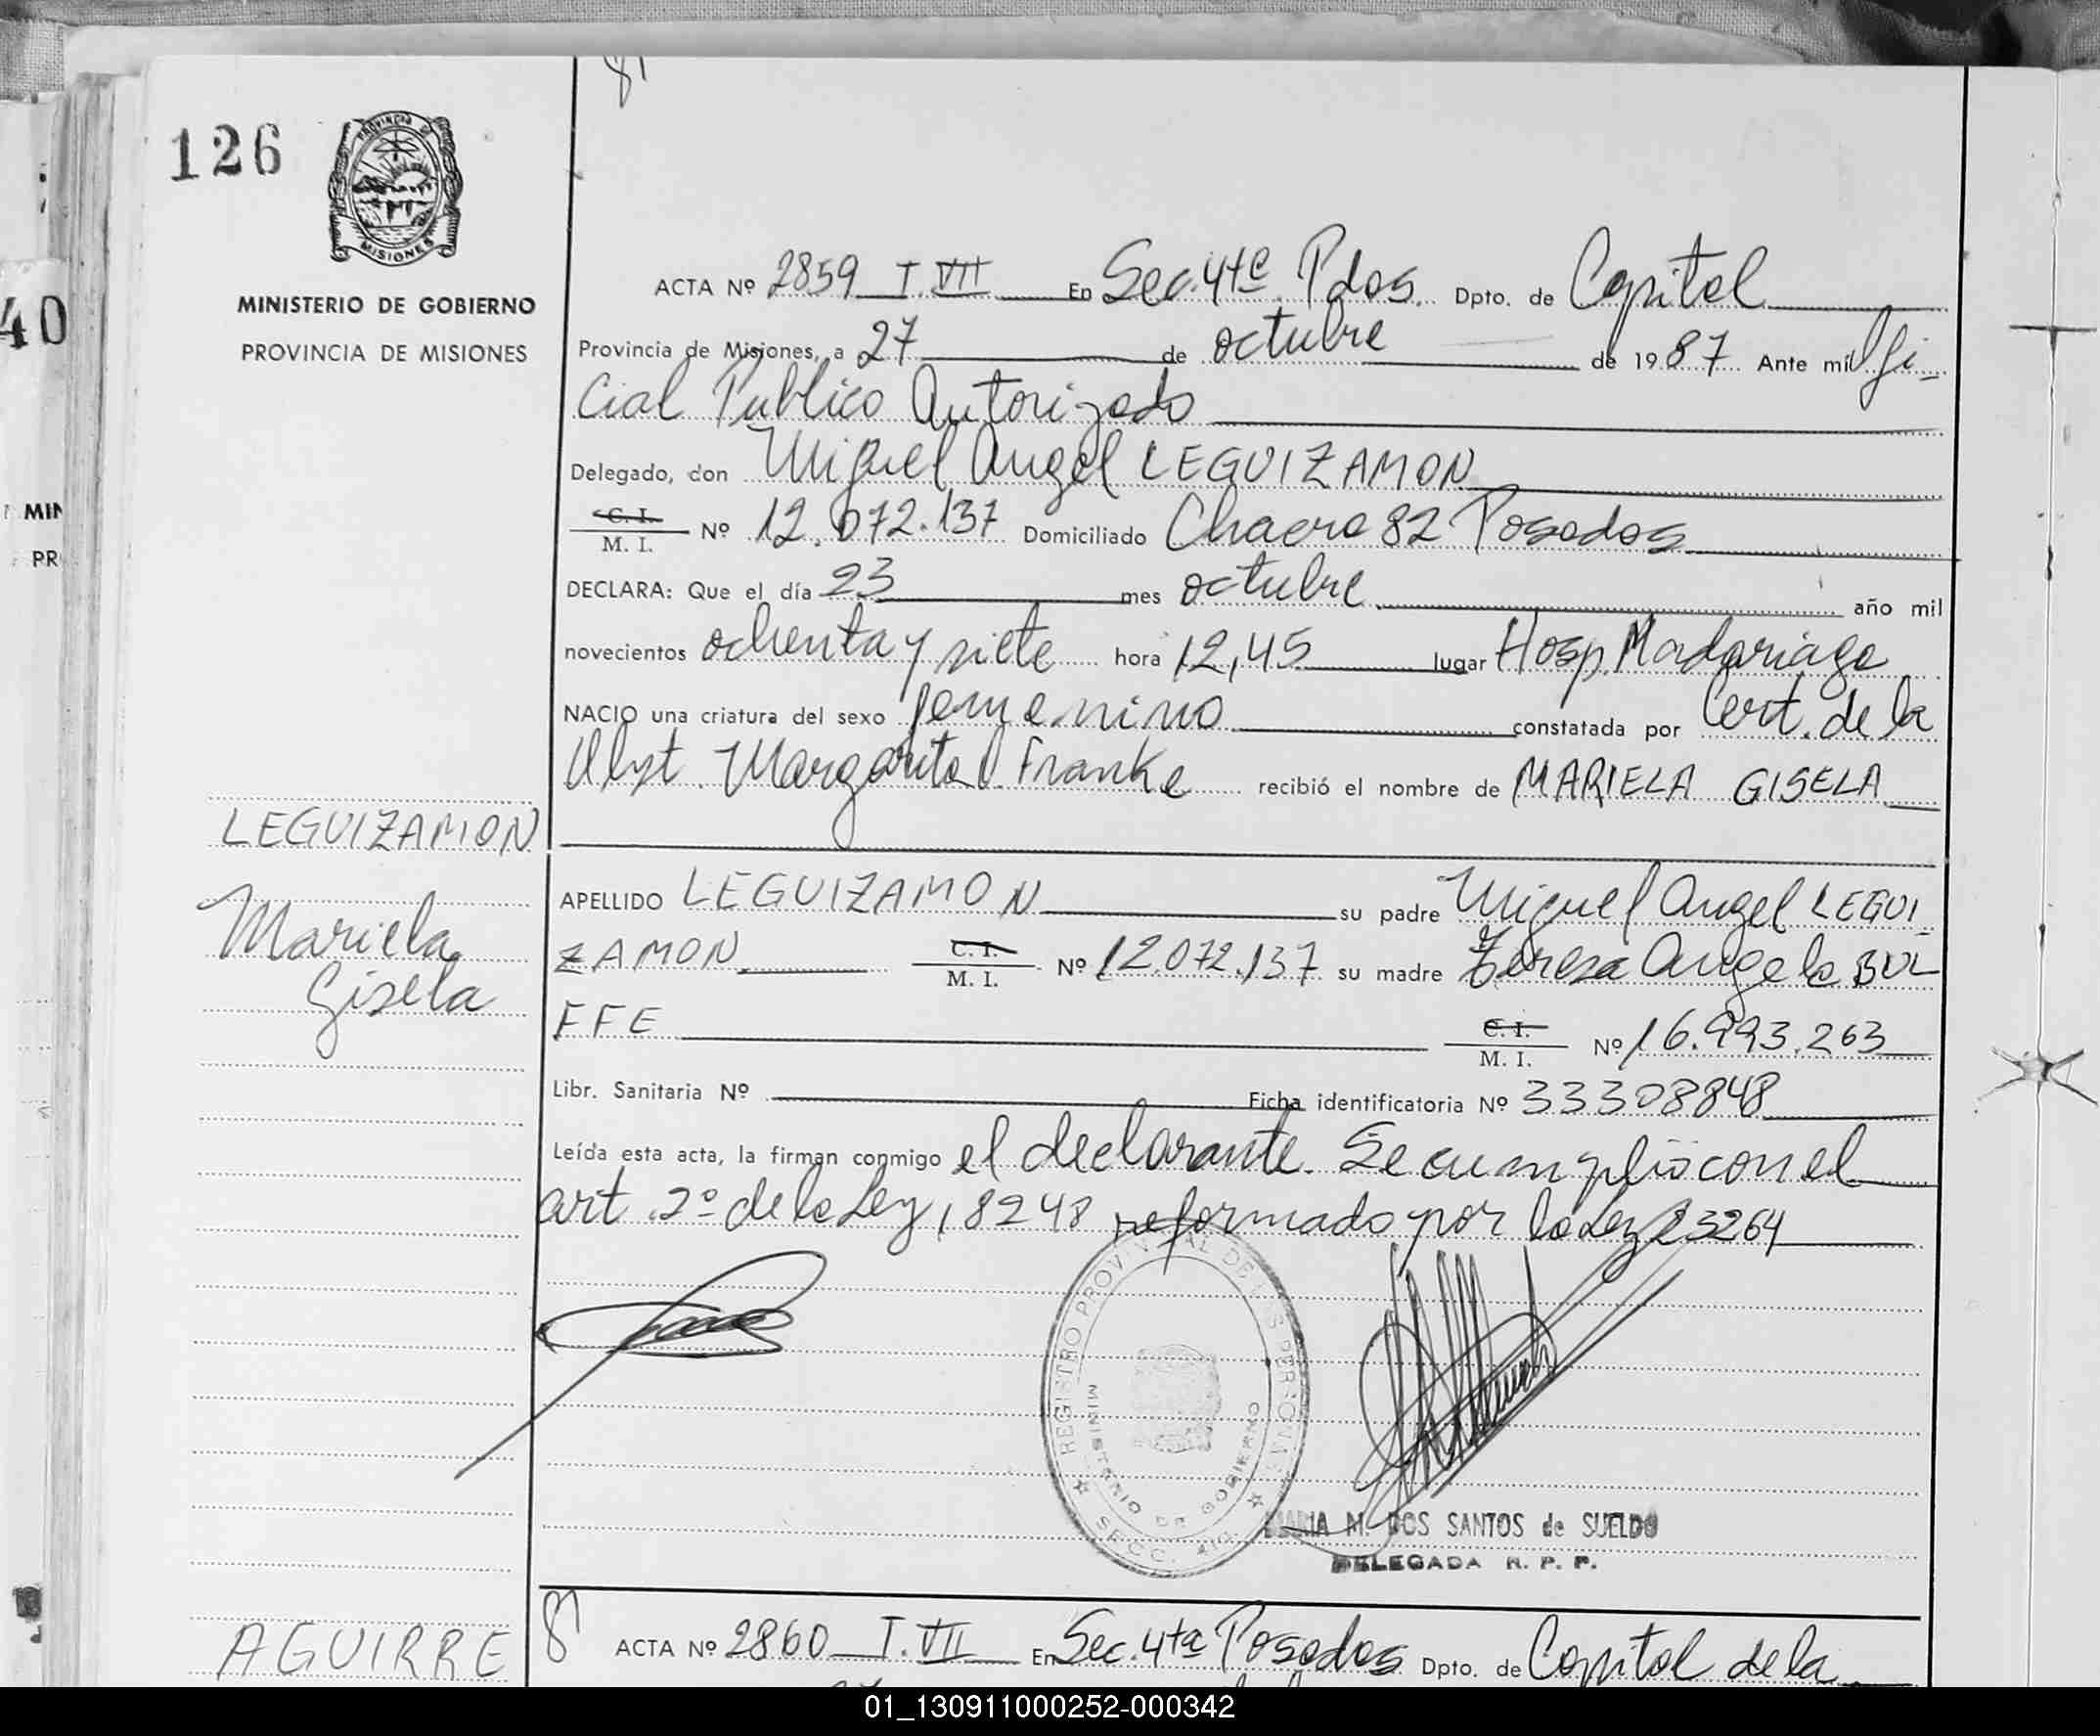 126
PROVINCIA DE
MISIONES
MINISTERIO DE GOBIERNO
PROVINCIA DE MISIONES
40
MIN
PR
ACTA Nº 2859 T. VII En Sec. 4ta Pdas. Dpto. de Capital
Provincia de Misiones, a 27 de octubre de 1987 Ante mi Ofi-
cial Publico Autorizado
Delegado, don Miguel Angel LEGUIZAMON
C. I.
M. I. Nº 12.072.137 Domiciliado Chacra 82 Posadas
DECLARA: Que el día 23 mes octubre año mil
novecientos ochenta y siete hora 12,45 lugar Hosp. Madariaga
NACIO una criatura del sexo femenino constatada por Cert. de la
Obst. Margarita Franke recibió el nombre de MARIELA GISELA
LEGUIZAMON
Mariela
Gisela
APELLIDO LEGUIZAMON su padre Miguel Angel LEGUI
ZAMON C. I. M. I. Nº 12.072.137 su madre Teresa Angela BUL
FFE C. I. M. I. Nº 16.993.263
Libr. Sanitaria Nº Ficha identificatoria Nº 33308848
Leída esta acta, la firman conmigo el declarante. Se cumplió con el
art. 2º de la Ley 18248 reformado por la Ley 23264
REGISTRO PROVINCIAL DE LAS PERSONAS
MINISTERIO DE GOBIERNO
SECC. 4ta.
MARIA M. DOS SANTOS de SUELDO
DELEGADA R. P. P.
AGUIRRE
ACTA Nº 2860 T. VII En Sec. 4ta Posadas Dpto. de Capital de la
01_130911000252-000342